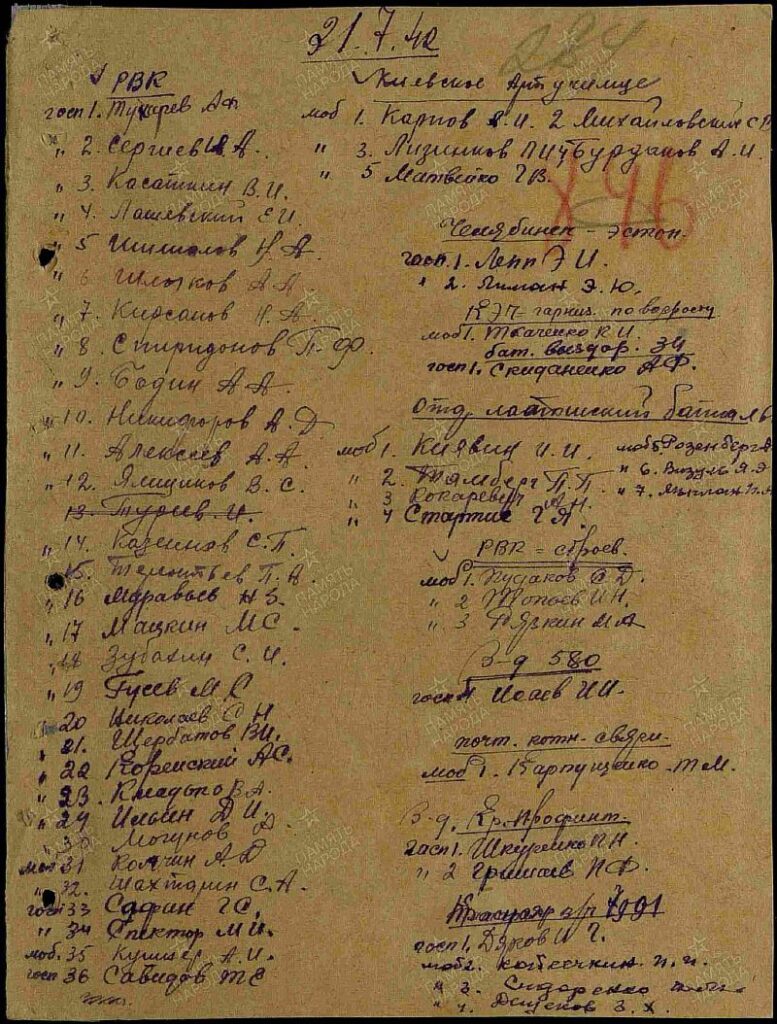 21.7.42
224
РВК
госп 1. Тукарев А Ф
" 2. Сергиев И А.
" 3. Касаткин В. И.
" 4. Лашевский Е И.
" 5 Шишалов Н А.
" 6 Шлотков А А.
" 7. Кирсанов Н. А.
" 8. Спиридонов П. Ф.
" 9. Бодин А А.
" 10. Никифоров А. Д
" 11. Алексеев А. А.
" 12. Ямщиков В. С.
13. Гуреев И.
" 14. Казеннов С. П.
" 15. Терентьев П. А.
" 16 Муравьев Н З.
" 17 Мацкин М С.
" 18 Зубахин С. И.
" 19 Гусев М С
" 20 Николаев С Н
" 21. Щербатов В И.
" 22 Корейский А С.
" 23. Кладько В А.
" 24 Ильин Д И.
" 30 Могунов Д.
моб 31 Колчин А Д
" 32. Шахтарин С. А.
госп 33 Сафин Г С.
" 34 Спектор М И.
моб. 35 Кушнер А. И.
госп 36 Савидов Т Е
Киевское Артучилище
моб 1. Карпов И. 2 Михайловский С В
" 3. Лизинков П И 4 Бурдаков А. И.
" 5 Матвейко Г В.
х 46
Челябинск - эстон.
госп. 1. Лепп Э И.
" 2. Лиман Э. Ю.
КЭЧ гарниз. по возрасту
моб 1. Ткаченко К И.
бат. выздор. 34
госп 1. Скиданенко А Ф.
Отд. латышский баталь
моб 1. Киявин И. И. моб 5 Розенберг А
" 2. Тямберг П. П. " 6. Визуль Я. Э
" 3 Кокаревич А Н. " 7.
" 4 Стартис Г Я.
РВК = строев.
моб 1. Кудаков С Д.
" 2 Топоев И Н.
" 3 Тязкин М А
В-д 580
госп 1 Исаев И И.
почт. котн. связи.
моб 1. Карпущенко Т М.
В-д. Кр. Профинт.
госп 1. Шкуренко П Н.
" 2 Гришаев П Ф.
Краснояр а/п 1991
госп 1. Дяков И Г.
моб 2. Копеечкин П. И.
" 3. Сидоренко
" 4. Денеков З. Х.
ПАМЯТЬ НАРОДА